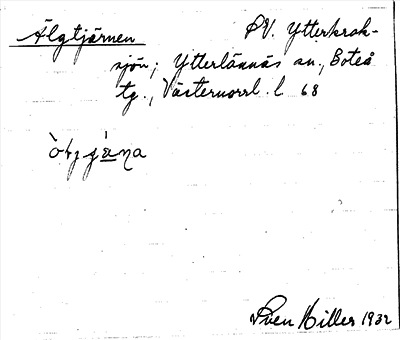 Älgtjärnen SV. Ytterkrok-
sjön; Ytterlännäs sn., Boteå
tg., Västernorrl. l. 68
Sven Hiller 1932